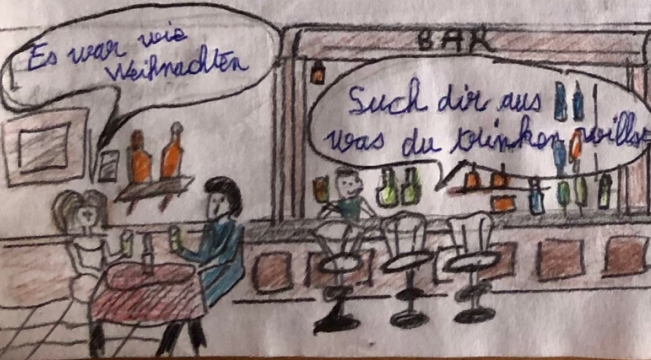 Es war wie
Weihnachten
BAR
Such dir aus
was du trinken willst